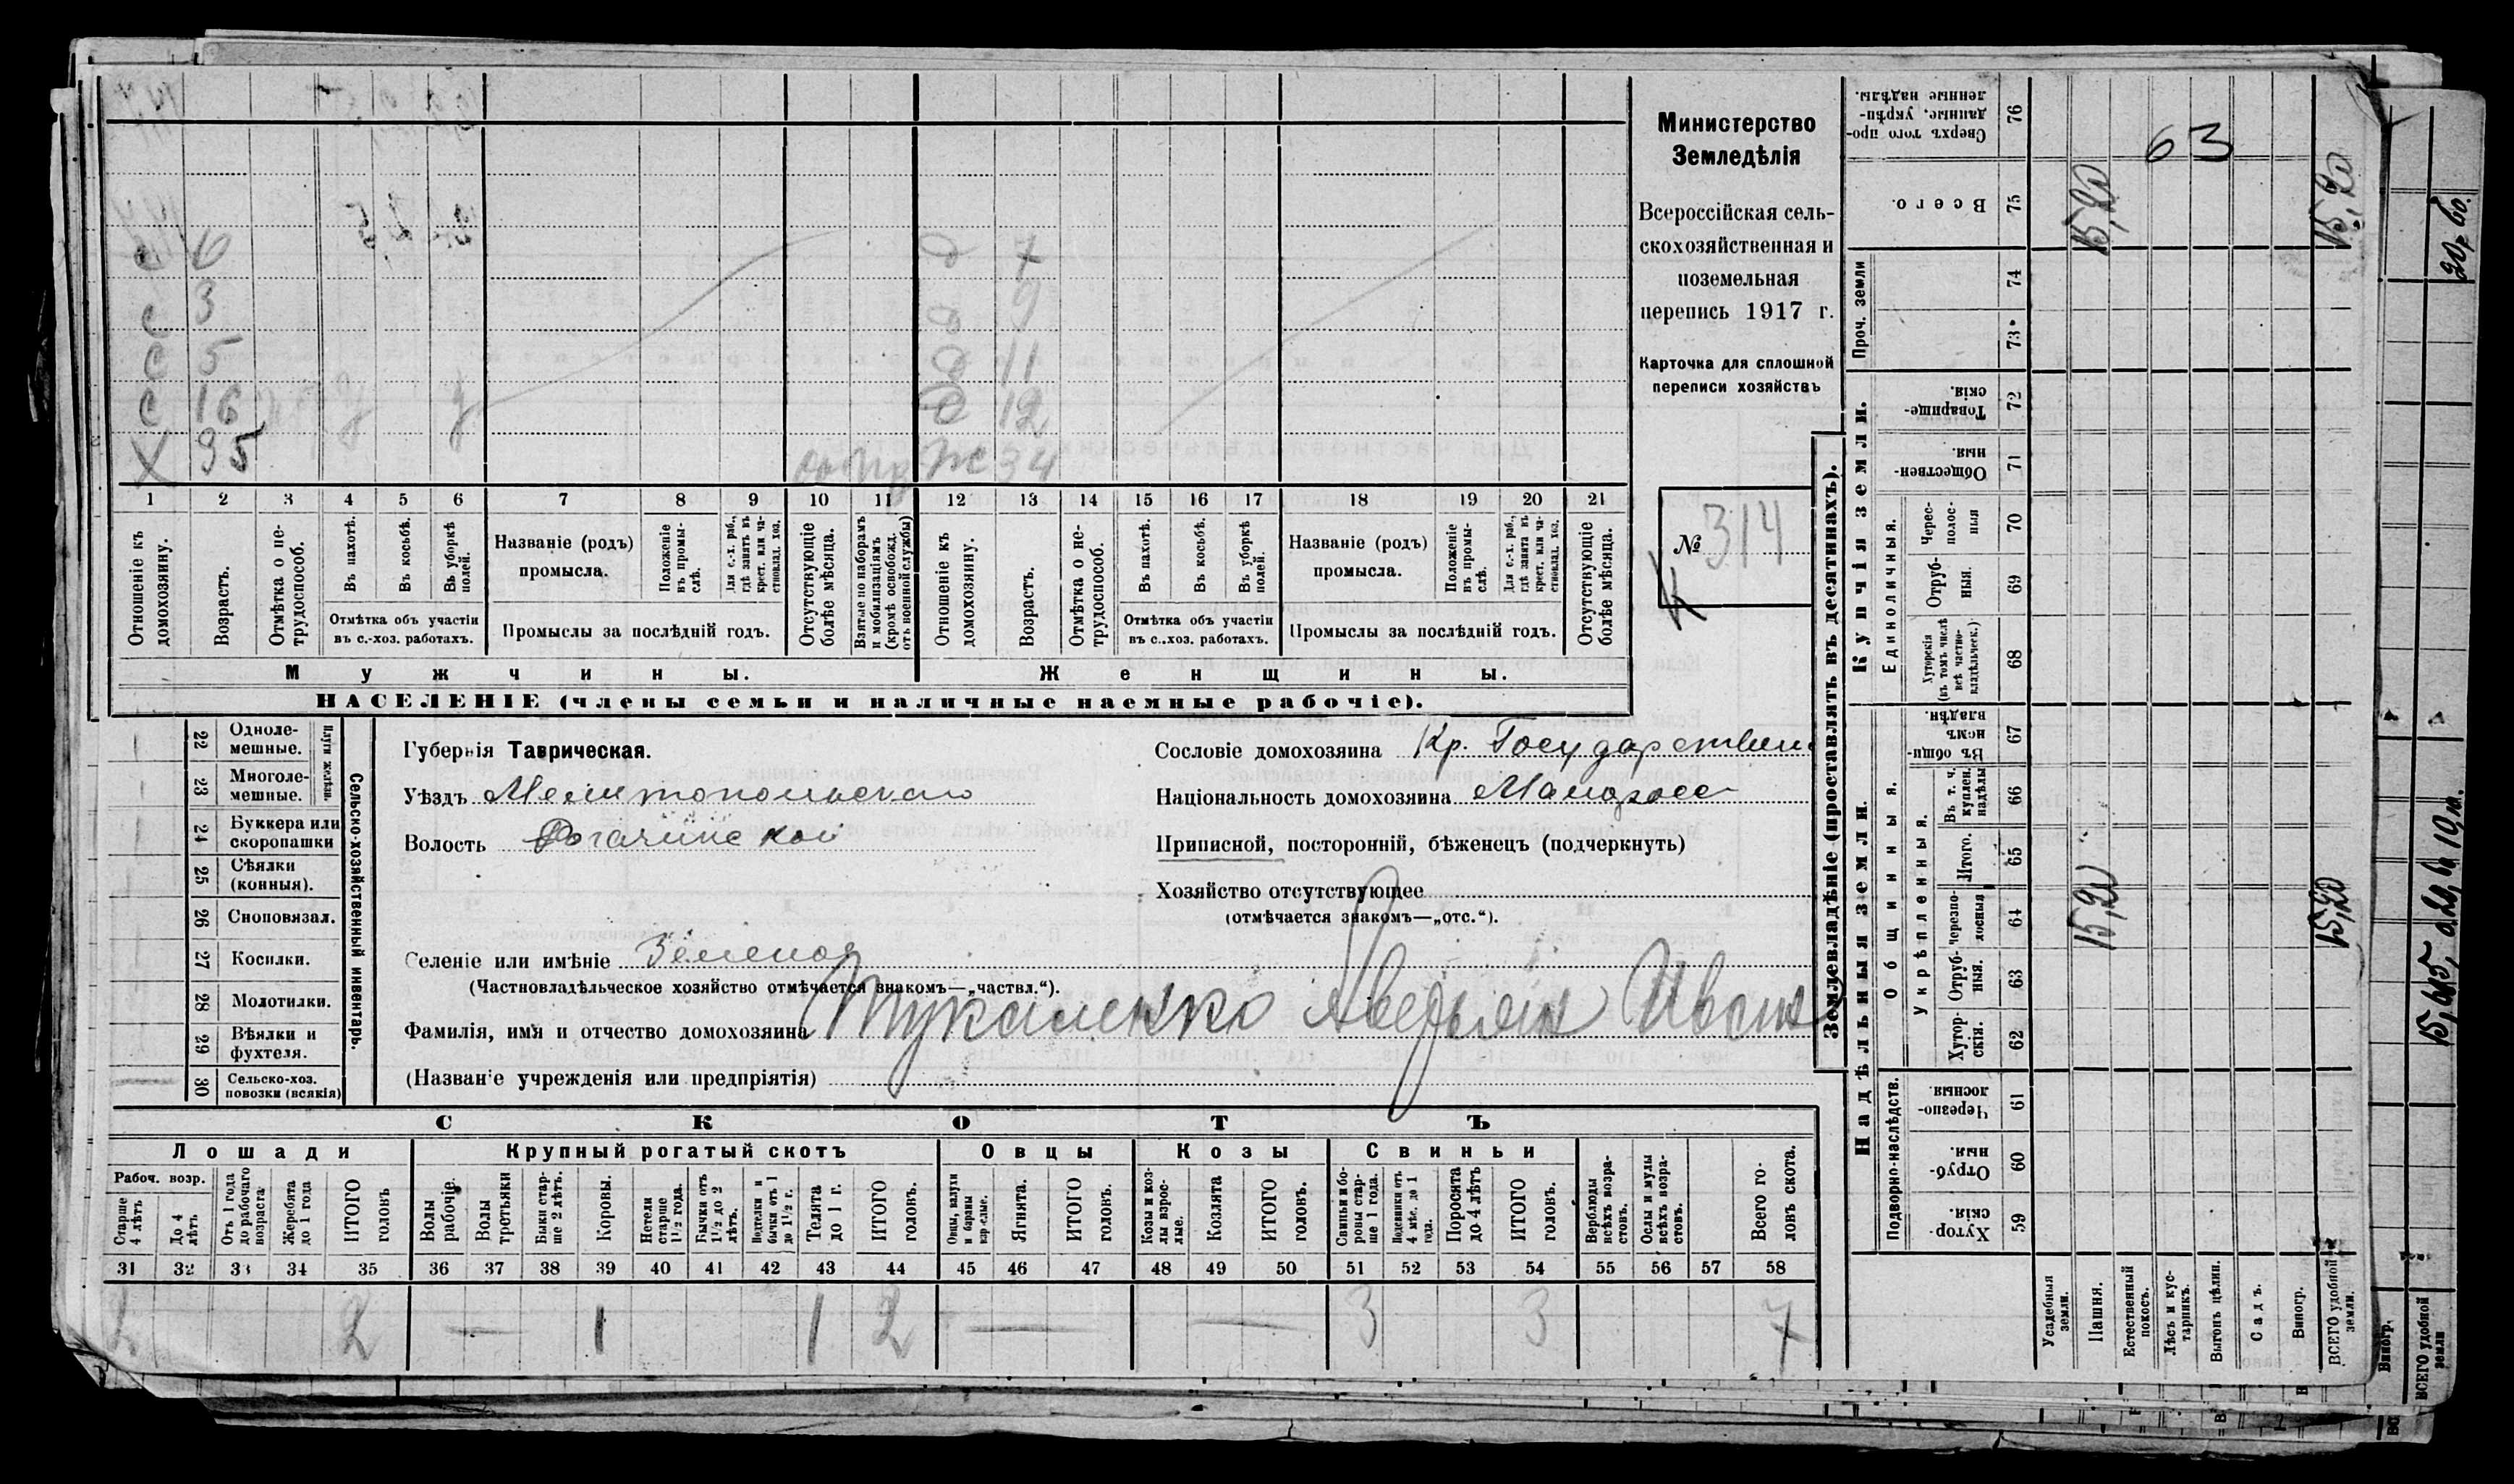 Министерство
Земледѣлія
Всероссійская сель-
скохозяйственная и
поземельная
перепись 1917 г.
Карточка для сплошной
переписи хозяйствъ
№ 314
с 6 д 7
с 3 д 9
с 5 д 11
с 16 д 12
Х 35 Ж 34
1 2 3 4 5 6 7 8 9 10 11 12 13 14 15 16 17 18 19 20 21
Отношеніе къ домохозяину.
Возрастъ.
Отмѣтка о не-трудоспособ.
Въ пахотѣ.
Въ косьбѣ.
Въ уборкѣ полей.
Отмѣтка объ участіи
въ с.-хоз. работахъ.
Названіе (родъ)
промысла.
Положеніе въ промы-слѣ.
Для с.-х. раб., гдѣ занятъ въ крест. или ча-стновлад. хоз.
Промыслы за послѣдній годъ.
Отсутствующіе болѣе мѣсяца.
Взятые по наборамъ и мобилизаціямъ (кромѣ освобожд. отъ военной службы)
Отношеніе къ домохозяину.
Возрастъ.
Отмѣтка о не-трудоспособ.
Въ пахотѣ.
Въ косьбѣ.
Въ уборкѣ полей.
Отмѣтка объ участіи
въ с..хоз. работахъ.
Названіе (родъ)
промысла.
Положеніе въ промы-слѣ.
Для с.-х. раб., гдѣ занята въ крест. или ча-стновлад. хоз.
Промыслы за послѣдній годъ.
Отсутствующіе болѣе мѣсяца.
Мужчины. Женщины.
НАСЕЛЕНІЕ (члены семьи и наличные наемные рабочіе).
22 Одноле-мешные.
23 Многоле-мешные.
Плуги желѣзн.
24 Буккера или скоропашки
25 Сѣялки (конныя).
26 Сноповязал.
27 Косилки.
28 Молотилки.
29 Вѣялки и фухтеля.
30 Сельско-хоз. повозки (всякія)
Сельско-хозяйственный инвентарь.
Губернія Таврическая.
Уѣздъ Мелитопольскаго
Волость Рогачинской
Селеніе или имѣніе Зеленая
(Частновладѣльческое хозяйство отмѣчается знакомъ—„частвл.“).
Фамилія, имя и отчество домохозяина Тукаленко Аверьян Иван
(Названіе учрежденія или предпріятія)
Сословіе домохозяина Кр. Государствен
Національность домохозяина Малоросс
Приписной, посторонній, бѣженецъ (подчеркнуть)
Хозяйство отсутствующее
(отмѣчается знакомъ—„отс.“).
СКОТЪ
Лошади Крупный рогатый скотъ Овцы Козы Свиньи
Рабоч. возр.
Старше 4 лѣтъ
До 4 лѣтъ
Отъ 1 года до рабочаго возраста
Жеребята до 1 года
ИТОГО головъ
Волы рабочіе.
Волы третьяки
Быки стар-ше 2 лѣтъ.
Коровы.
Нетели старше 1½ года.
Бычки отъ 1½ до 2 лѣтъ.
Подтелки и бычки отъ 1 до 1½ г.
Телята до 1 г.
ИТОГО головъ.
Овцы, валухи и бараны взрослые.
Ягнята.
ИТОГО головъ.
Козы и коз-лы взрос-лые.
Козлята
ИТОГО головъ.
Свиньи и бо-ровы стар-ше 1 года.
Подсвинки отъ 4 мѣс. до 1 года.
Поросята до 4 лѣтъ
ИТОГО головъ.
Верблюды всѣхъ возра-стовъ.
Ослы и мулы всѣхъ возра-стовъ.
Всего го-ловъ скота.
31 32 33 34 35 36 37 38 39 40 41 42 43 44 45 46 47 48 49 50 51 52 53 54 55 56 57 58
2 2 — 1 1 2 — — 3 3 7
Землевладѣніе (проставлять въ десятинахъ).
Купчія земли.
Надѣльныя земли.
Проч. земли
Единоличныя.
Общинныя.
Укрѣпленныя.
Подворно-наслѣдств.
Сверхъ того про-данные, укрѣп-ленные надѣлы. 76
Всего. 75
74
73
Товарище-скія. 72
Обществен-ныя. 71
Черес-полос-ныя 70
Отруб-ныя. 69
Хуторскія (въ томъ числѣ всѣ частно-владѣльческ.) 68
Въ общи-номъ владѣн. 67
Въ т. ч. куплен. надѣлы 66
Итого. 65
черезпо-лосныя 64
Отруб-ныя. 63
Хутор-скія. 62
Черезпо-лосныя 61
Отруб-ныя. 60
Хутор-скія. 59
Усадебныя земли.
Пашня.
Естественный покосъ.
Лѣсъ и кус-тарникъ.
Выгонъ цѣлин.
Садъ.
Виногр.
ВСЕГО удобной земли.
63
15,20
15,20
15,20
15,20
Виногр.
ВСЕГО удобной земли